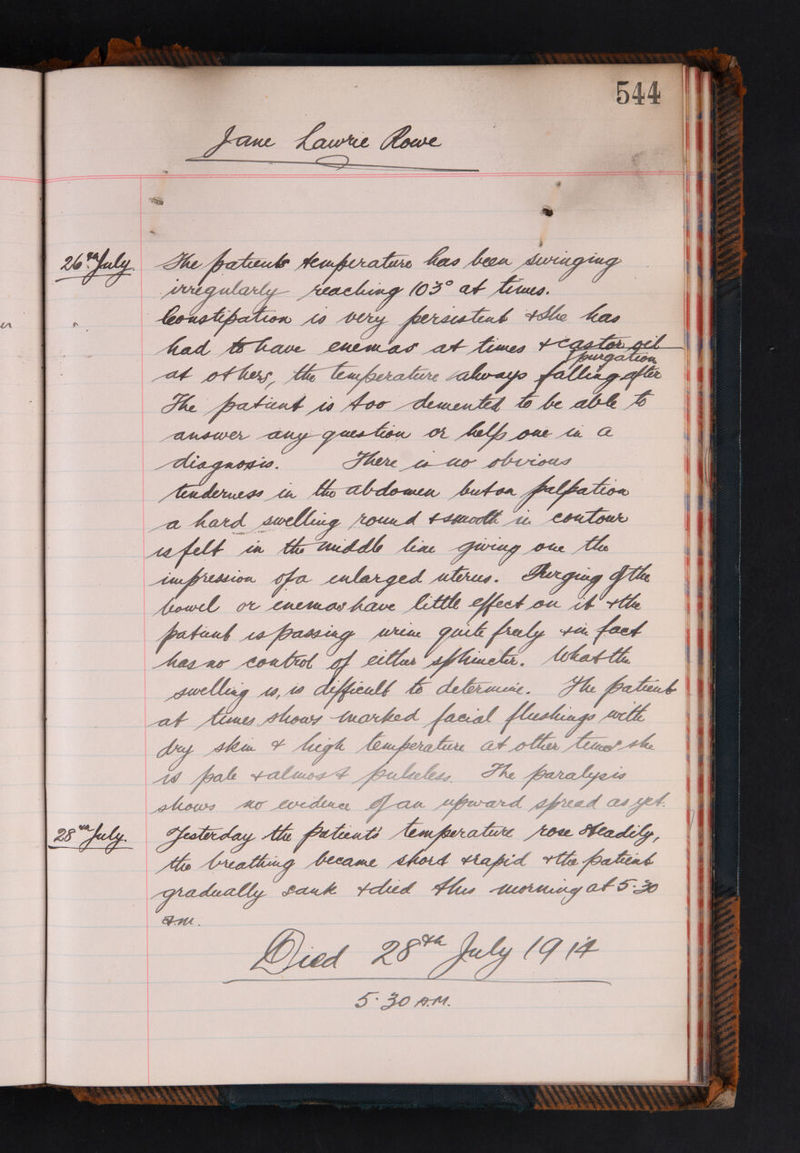 544
Jane Lawrie Rowe
26th July. The patients temperature has been swinging
irregularly reaching 103° at times.
Constipation is very persistent & she has
had to have enemas at times & castor oil
at others, the temperature always falling after purgation
The patient is too demented to be able to
answer any question or help one in a
diagnosis. There is no obvious
tenderness in the abdomen but on palpation
a hard swelling round & smooth in contour
is felt in the middle line giving one the
impression of a enlarged uterus. Purging of the
bowel or enemas have little effect on it & the
patient is passing urine quite freely & in fact
has no control of either sphincter. What the
swelling is, is difficult to determine. The patient
at times shows marked facial flushings with
dry skin & high temperature at other times she
is pale & almost pulseless. The paralysis
shows no evidence of an upward spread as yet.
28th July. Yesterday the patients temperature rose steadily,
the breathing became short & rapid & the patient
gradually sank & died this morning at 5.30
am.
Died 28th July 1914
5.30 A.M.